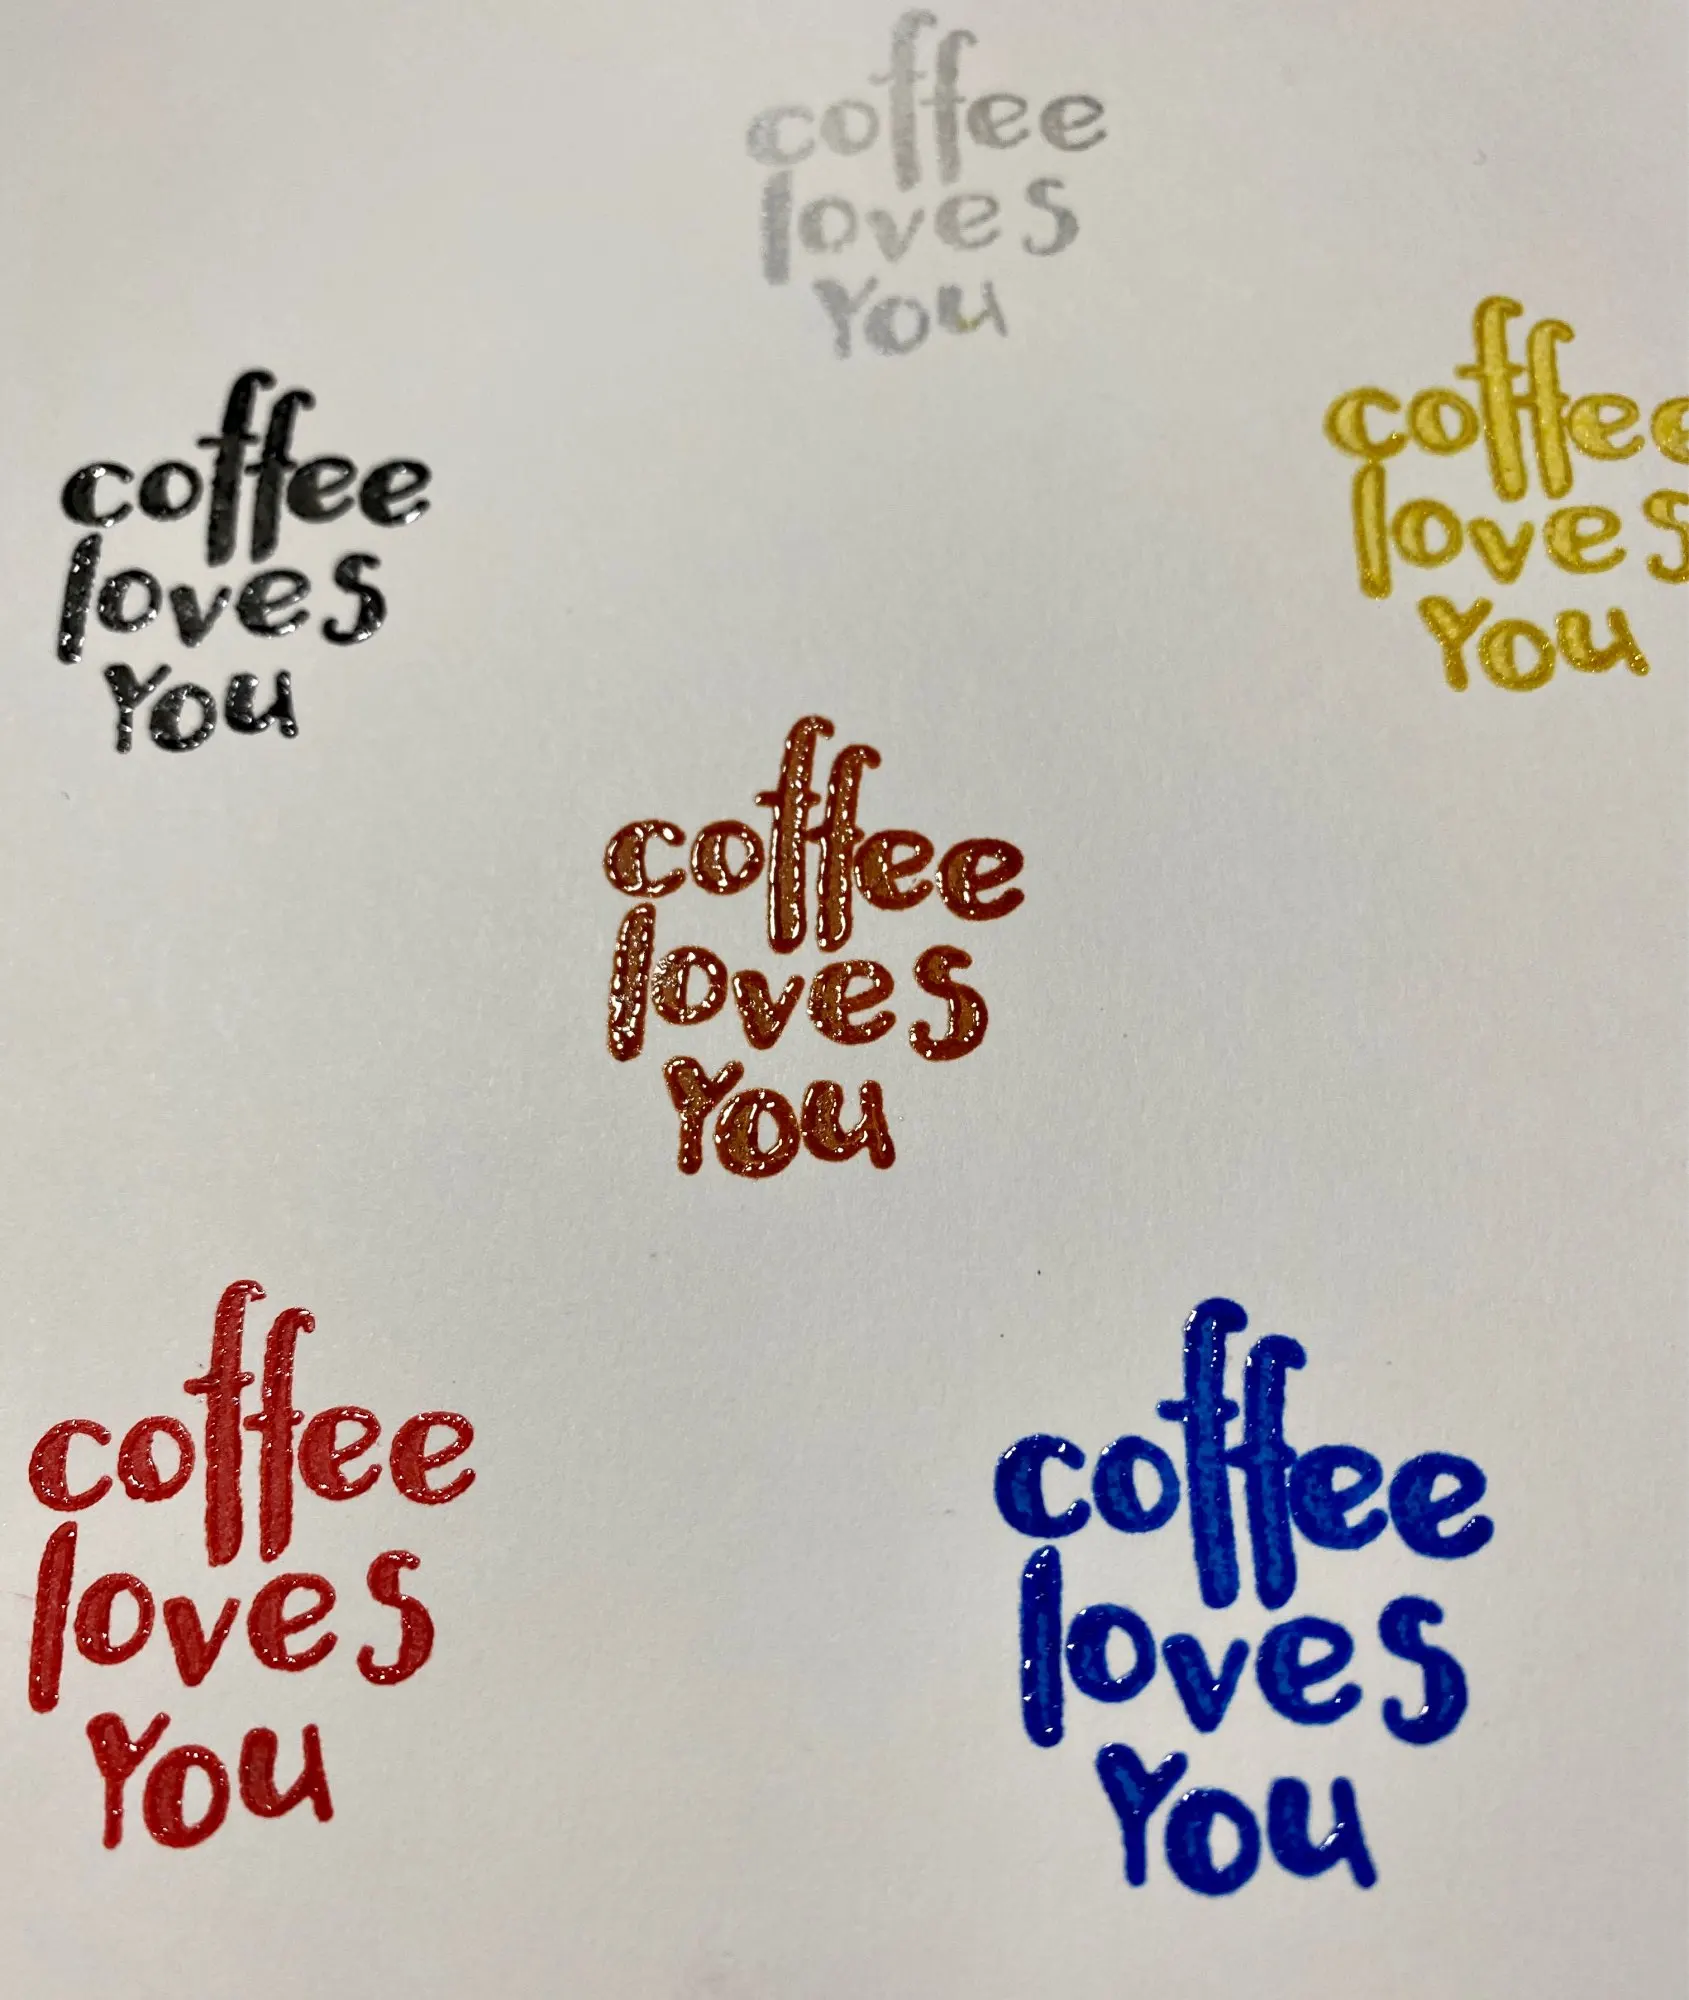 coffee
loves
You
coffee
loves
You
coffee
loves
You
coffee
loves
You
coffee
loves
You
coffee
loves
You